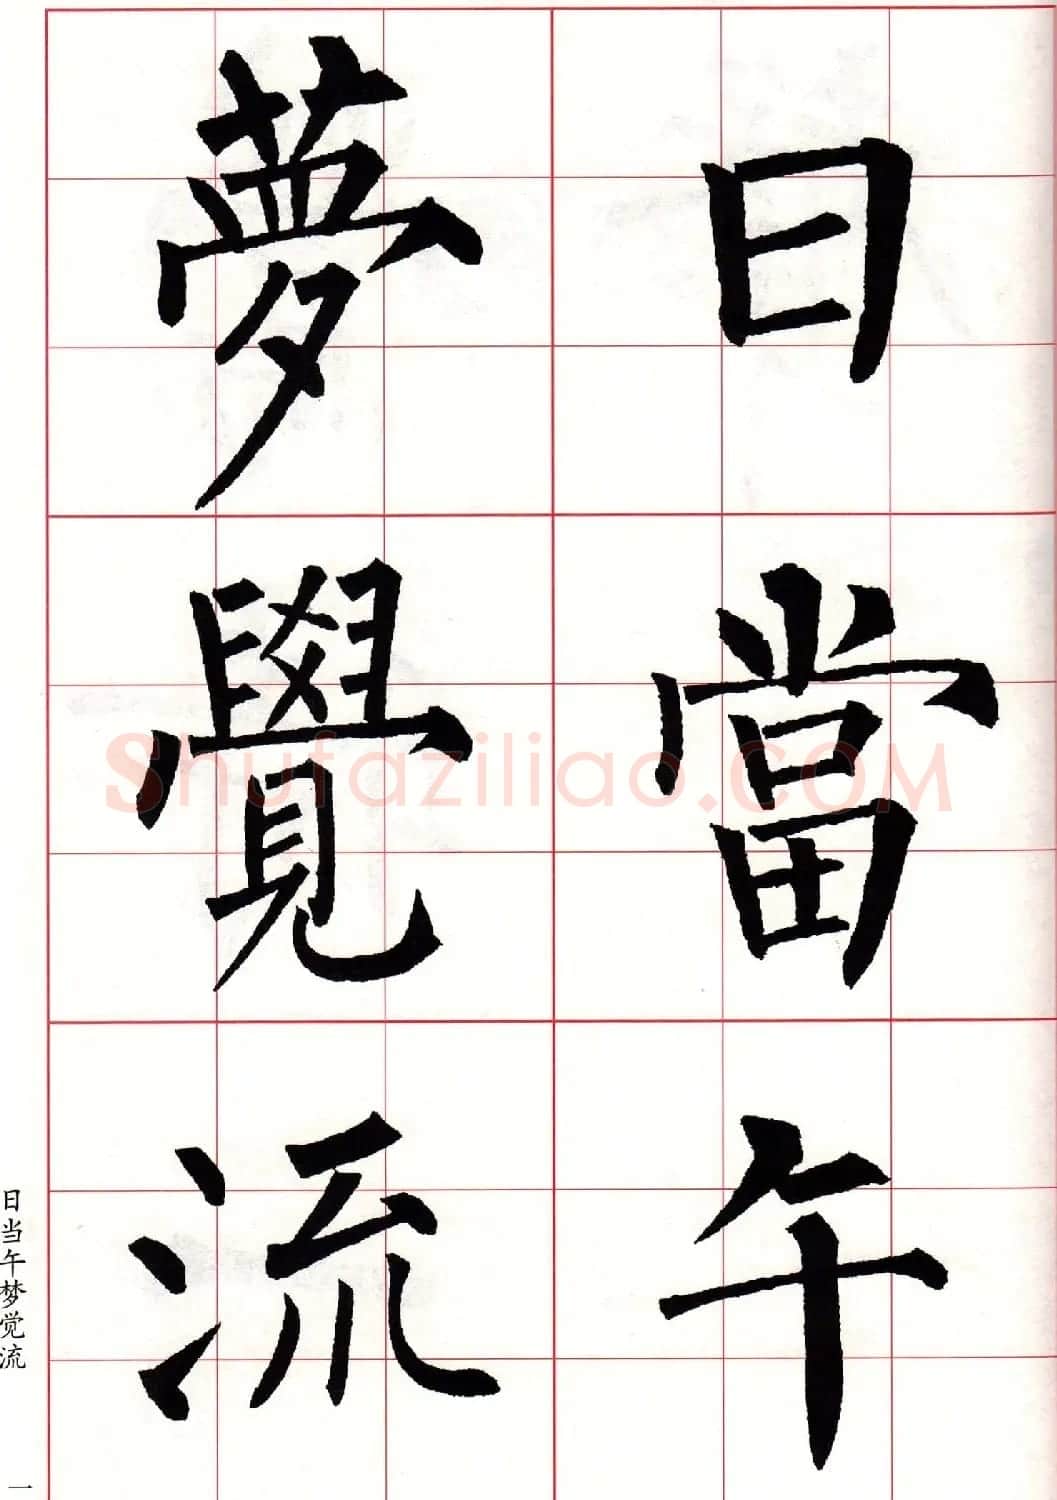 日當午
夢覺流
日当午梦觉流
一
Shufaziliao.COM